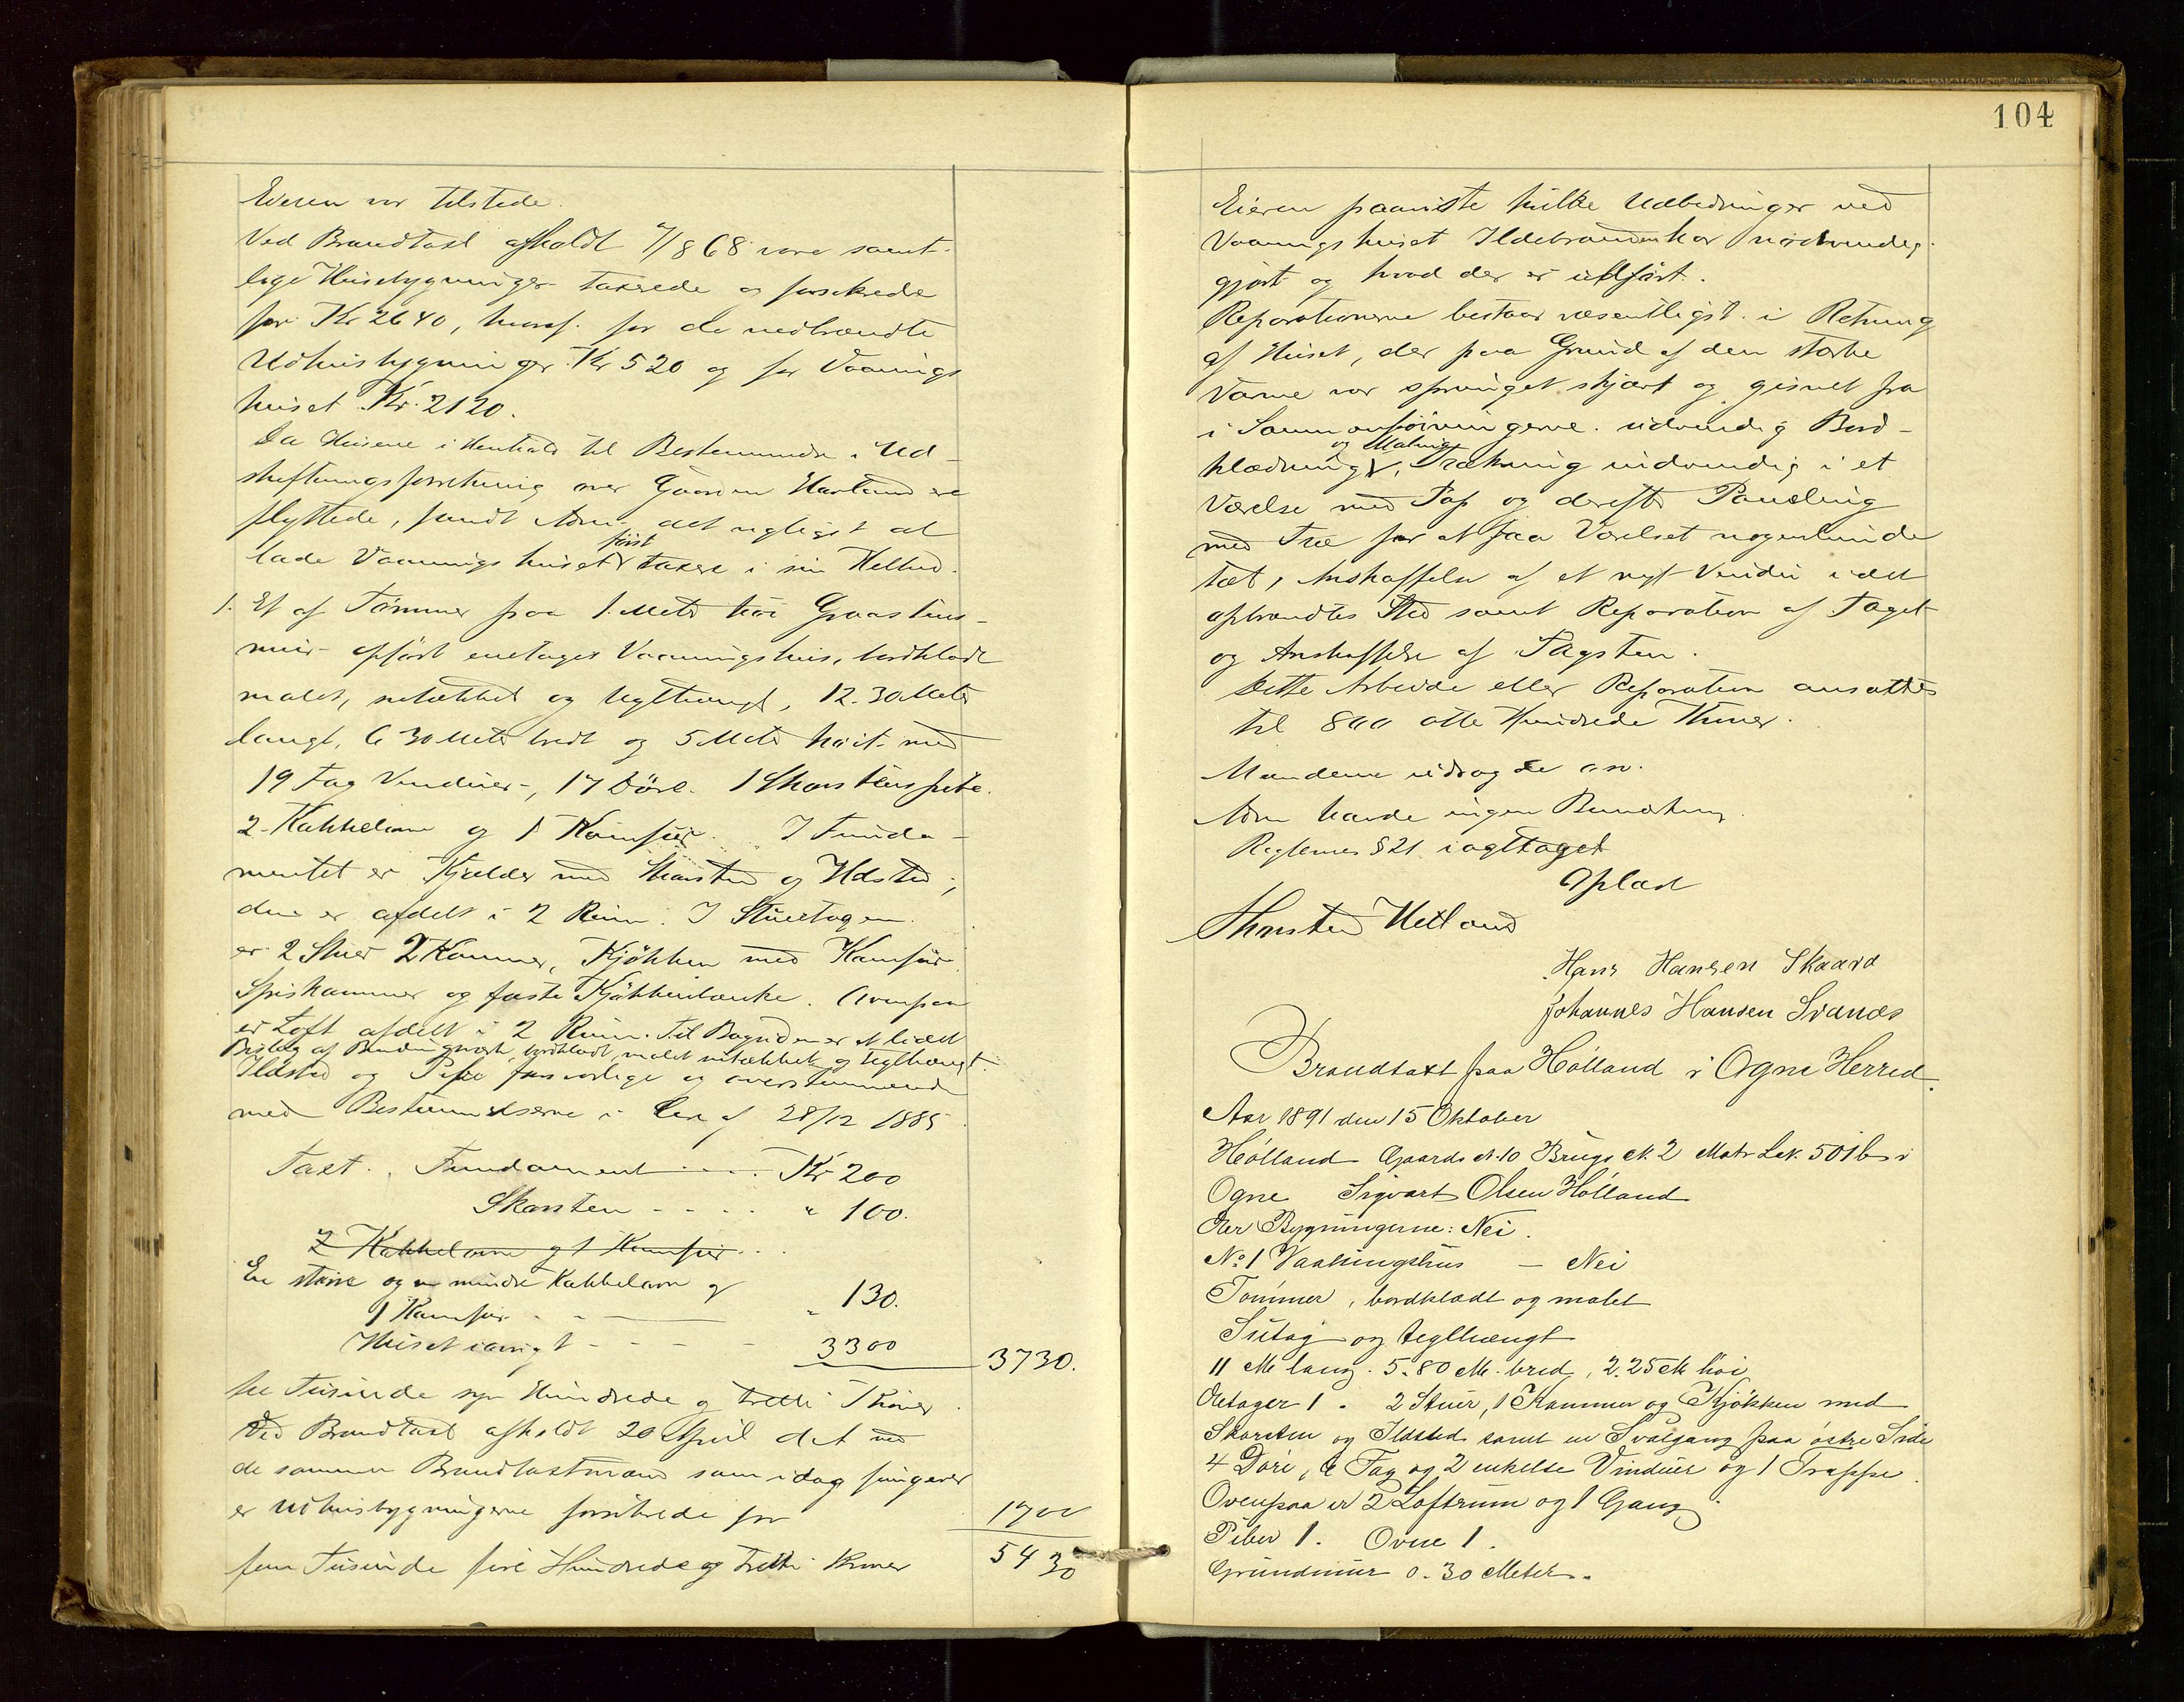 Eieren var tilstede.
Ved Brandtaxt afholdt 7/8 68 vare samt-
lige Husebygninger taxerede og forsikrede
for Kr 2640, hvoraf for de nedbrændte
Udhusbygninger Kr 520 og for Vaanings
huset Kr. 2120.
Da Husene i Henhold til Bestemmelse i Ud-
skiftningsforretning over Gaarden Hetland ere
flyttede, fandt Adm. det rigtigst at
først
lade Vaaningshuset taxere i sin Helhed.
1. Et af Tømmer paa 1 Meter høi Graastens-
mur opført enetages Vaaningshus, bordklædt
malet, sutækket og teglhængt, 12.30 Meter
langt, 6 30 Meter bredt og 5 Meter høit med
19 Fag Vinduer, 17 Døre. 1 Skorstenspibe.
2 Kakkelovne og 1 Komfur. I Funda-
mentet er Kjælder med Skorsten og Ildsted;
den er afdelt i 2 Rum. I Stueetagen
er 2 Stuer 2 Kammer, Kjøkken med Komfur
Spiskammer og faste Kjøkkenbænke. Ovenpaa
er Loft afdelt i 2 Rum. Til Bagsiden er et lidet
Bislag af Bindingsverk, bordklædt, malet sutækket og teglhængt.
Ildsted og Pibe forsvarlige og overstemmende
med Bestemmelserne i Lov af 28/12 1885
Taxt. Fundament . . . . Kr 200
Skorsten - - - - " 100.
2 Kakkelovne og 1 Komfur . .
En større og en mindre Kakkelovn og
1 Komfur - - " 130.
Huset iøvrigt - - - - 3300 3730.
tre Tusinde syv Hundrede og tretti Kroner
Ved Brandtaxt afholdt 20 April d A ved
de samme Brandtaxtmænd som idag fungerer
er Udhusbygningerne forsikrede for 1700
fem Tusinde fire Hundrede og tretti Kroner 5430
104
Eieren paaviste hvilke Udbedringer ved
Vaaningshuset Ildebranden har nødvendig-
gjort og hvad der er udført.
Reparationerne bestaar væsentligst i Retning
af Huset, der paa Grund af den stærke
Varme var sprunget skjævt og gisnet fra
i Sammenføiningerne. udvendig Bord-
og Maling
klædning, Trækning indvendig i et
Værelse med Pap og derefter Paneling
med Træ for at faa Værelset nogenlunde
tæt, Anskaffelse af et nyt Vindu i det
afbrændtes Sted samt Reparation af Taget
og Anskaffelse af Tagsten.
Dette Arbeide eller Reparation ansattes
til 800 otte Hundrede Kroner.
Mændene udsagde an.
Adm havde ingen Bemærkning.
Reglemes §21 iagttaget
Oplæst
Thorsten Hetland
Hans Hansen Skaara
Johannes Hansen Svanæs
Brandtaxt paa Hölland i Ogne Herred.
Aar 1891 den 15 Oktober
Hölland Gaards N. 10 Brugs N. 2 Matr Løb. 501b i
Ogne Sigvart Olsen Hölland
Aer Bygningerne: Nei.
No 1 Vaaningshus — Nei
Tömmer, bordklædt og malet
Sutag og teglhængt
11 M lang. 5.80 M. bred, 2.25 M höi
Etager 1. 2 Stuer, 1 Kammer og Kjökken med
Skorsten og Ildsted samt en Svalgang paa östre Side
4 Döre, 6 Fag og 2 enkelte Vinduer og 1 Trappe.
Ovenpaa er 2 Loftrum og 1 Gang.
Piber 1. Ovne 1.
Grundmur 0.30 Meter.